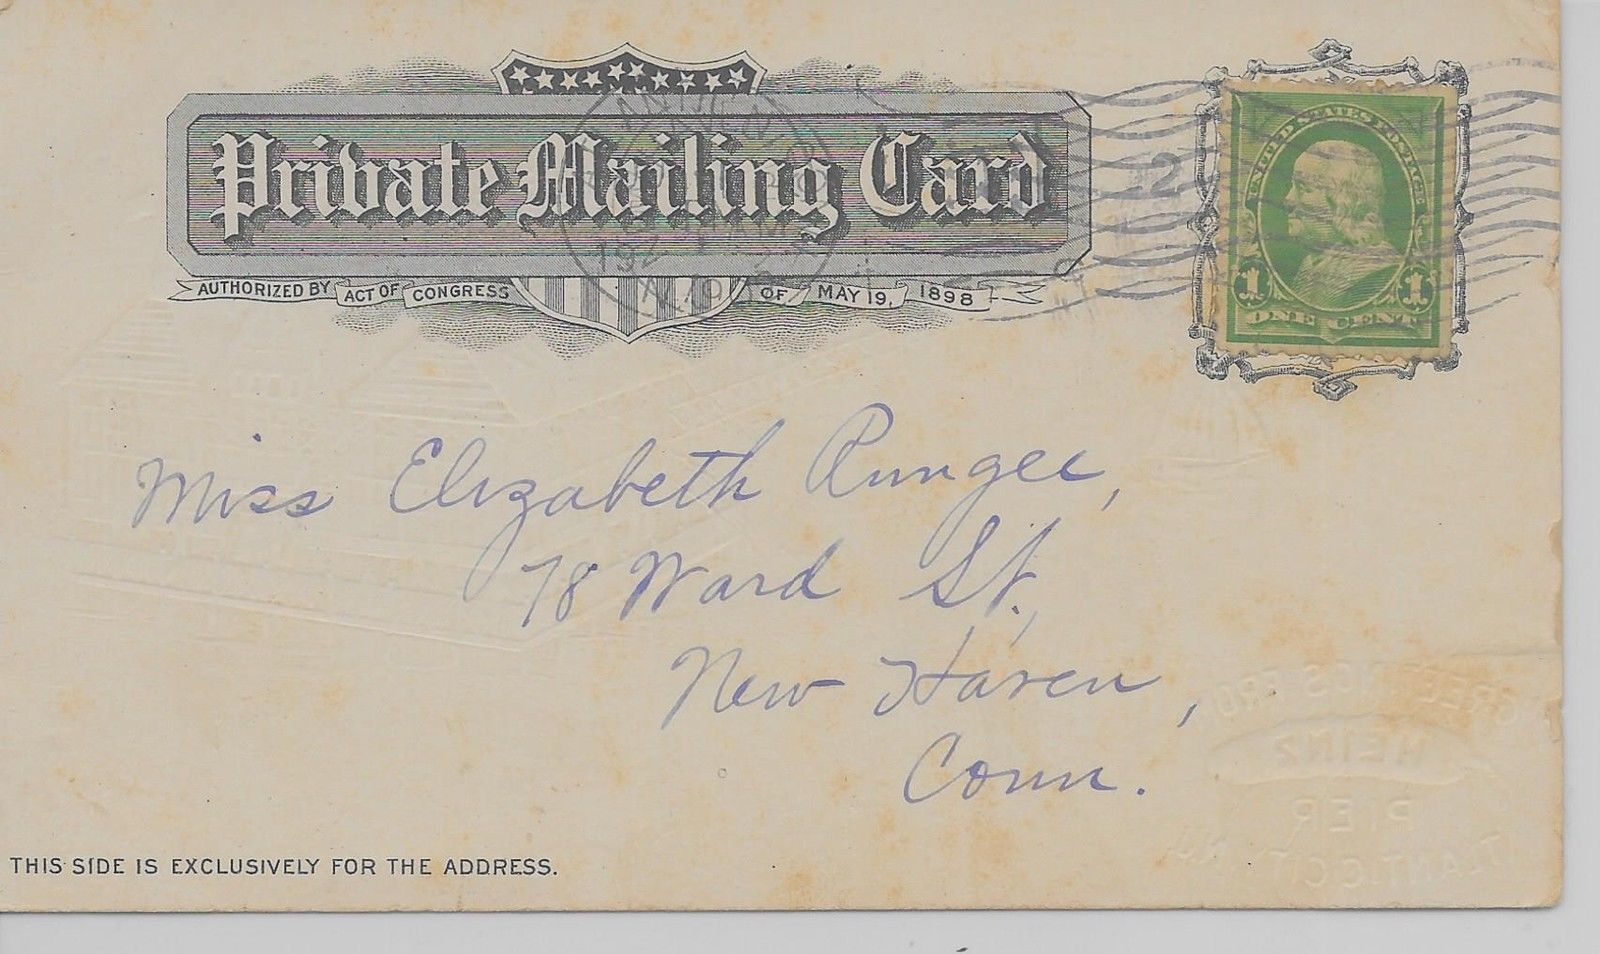 Private Mailing Card
AUTHORIZED BY ACT OF CONGRESS OF MAY 19, 1898
UNITED STATES POSTAGE
1 1
ONE CENT
2
Miss Elizabeth Rungee,
78 Ward St.,
New Haven,
Conn.
GREETINGS FROM
HEINZ
PIER
ATLANTIC CITY N.J.
THIS SIDE IS EXCLUSIVELY FOR THE ADDRESS.